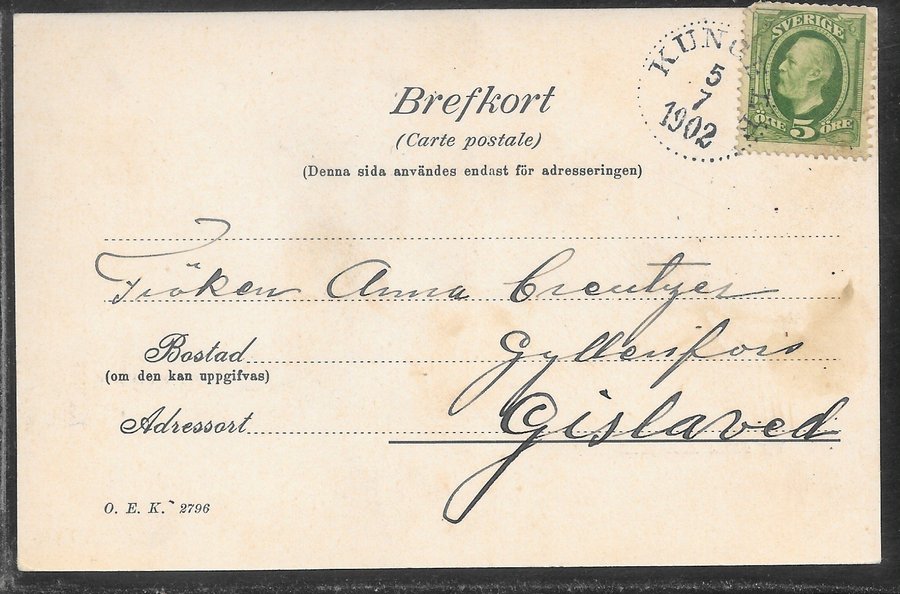 SVERIGE
ÖRE 5 ÖRE
KUNG
5
7
1902
Brefkort
(Carte postale)
(Denna sida användes endast för adresseringen)
Fröken Anna Creutzer
Bostad Gyllenfors
(om den kan uppgifvas)
Adressort Gislaved
O. E. K. 2796